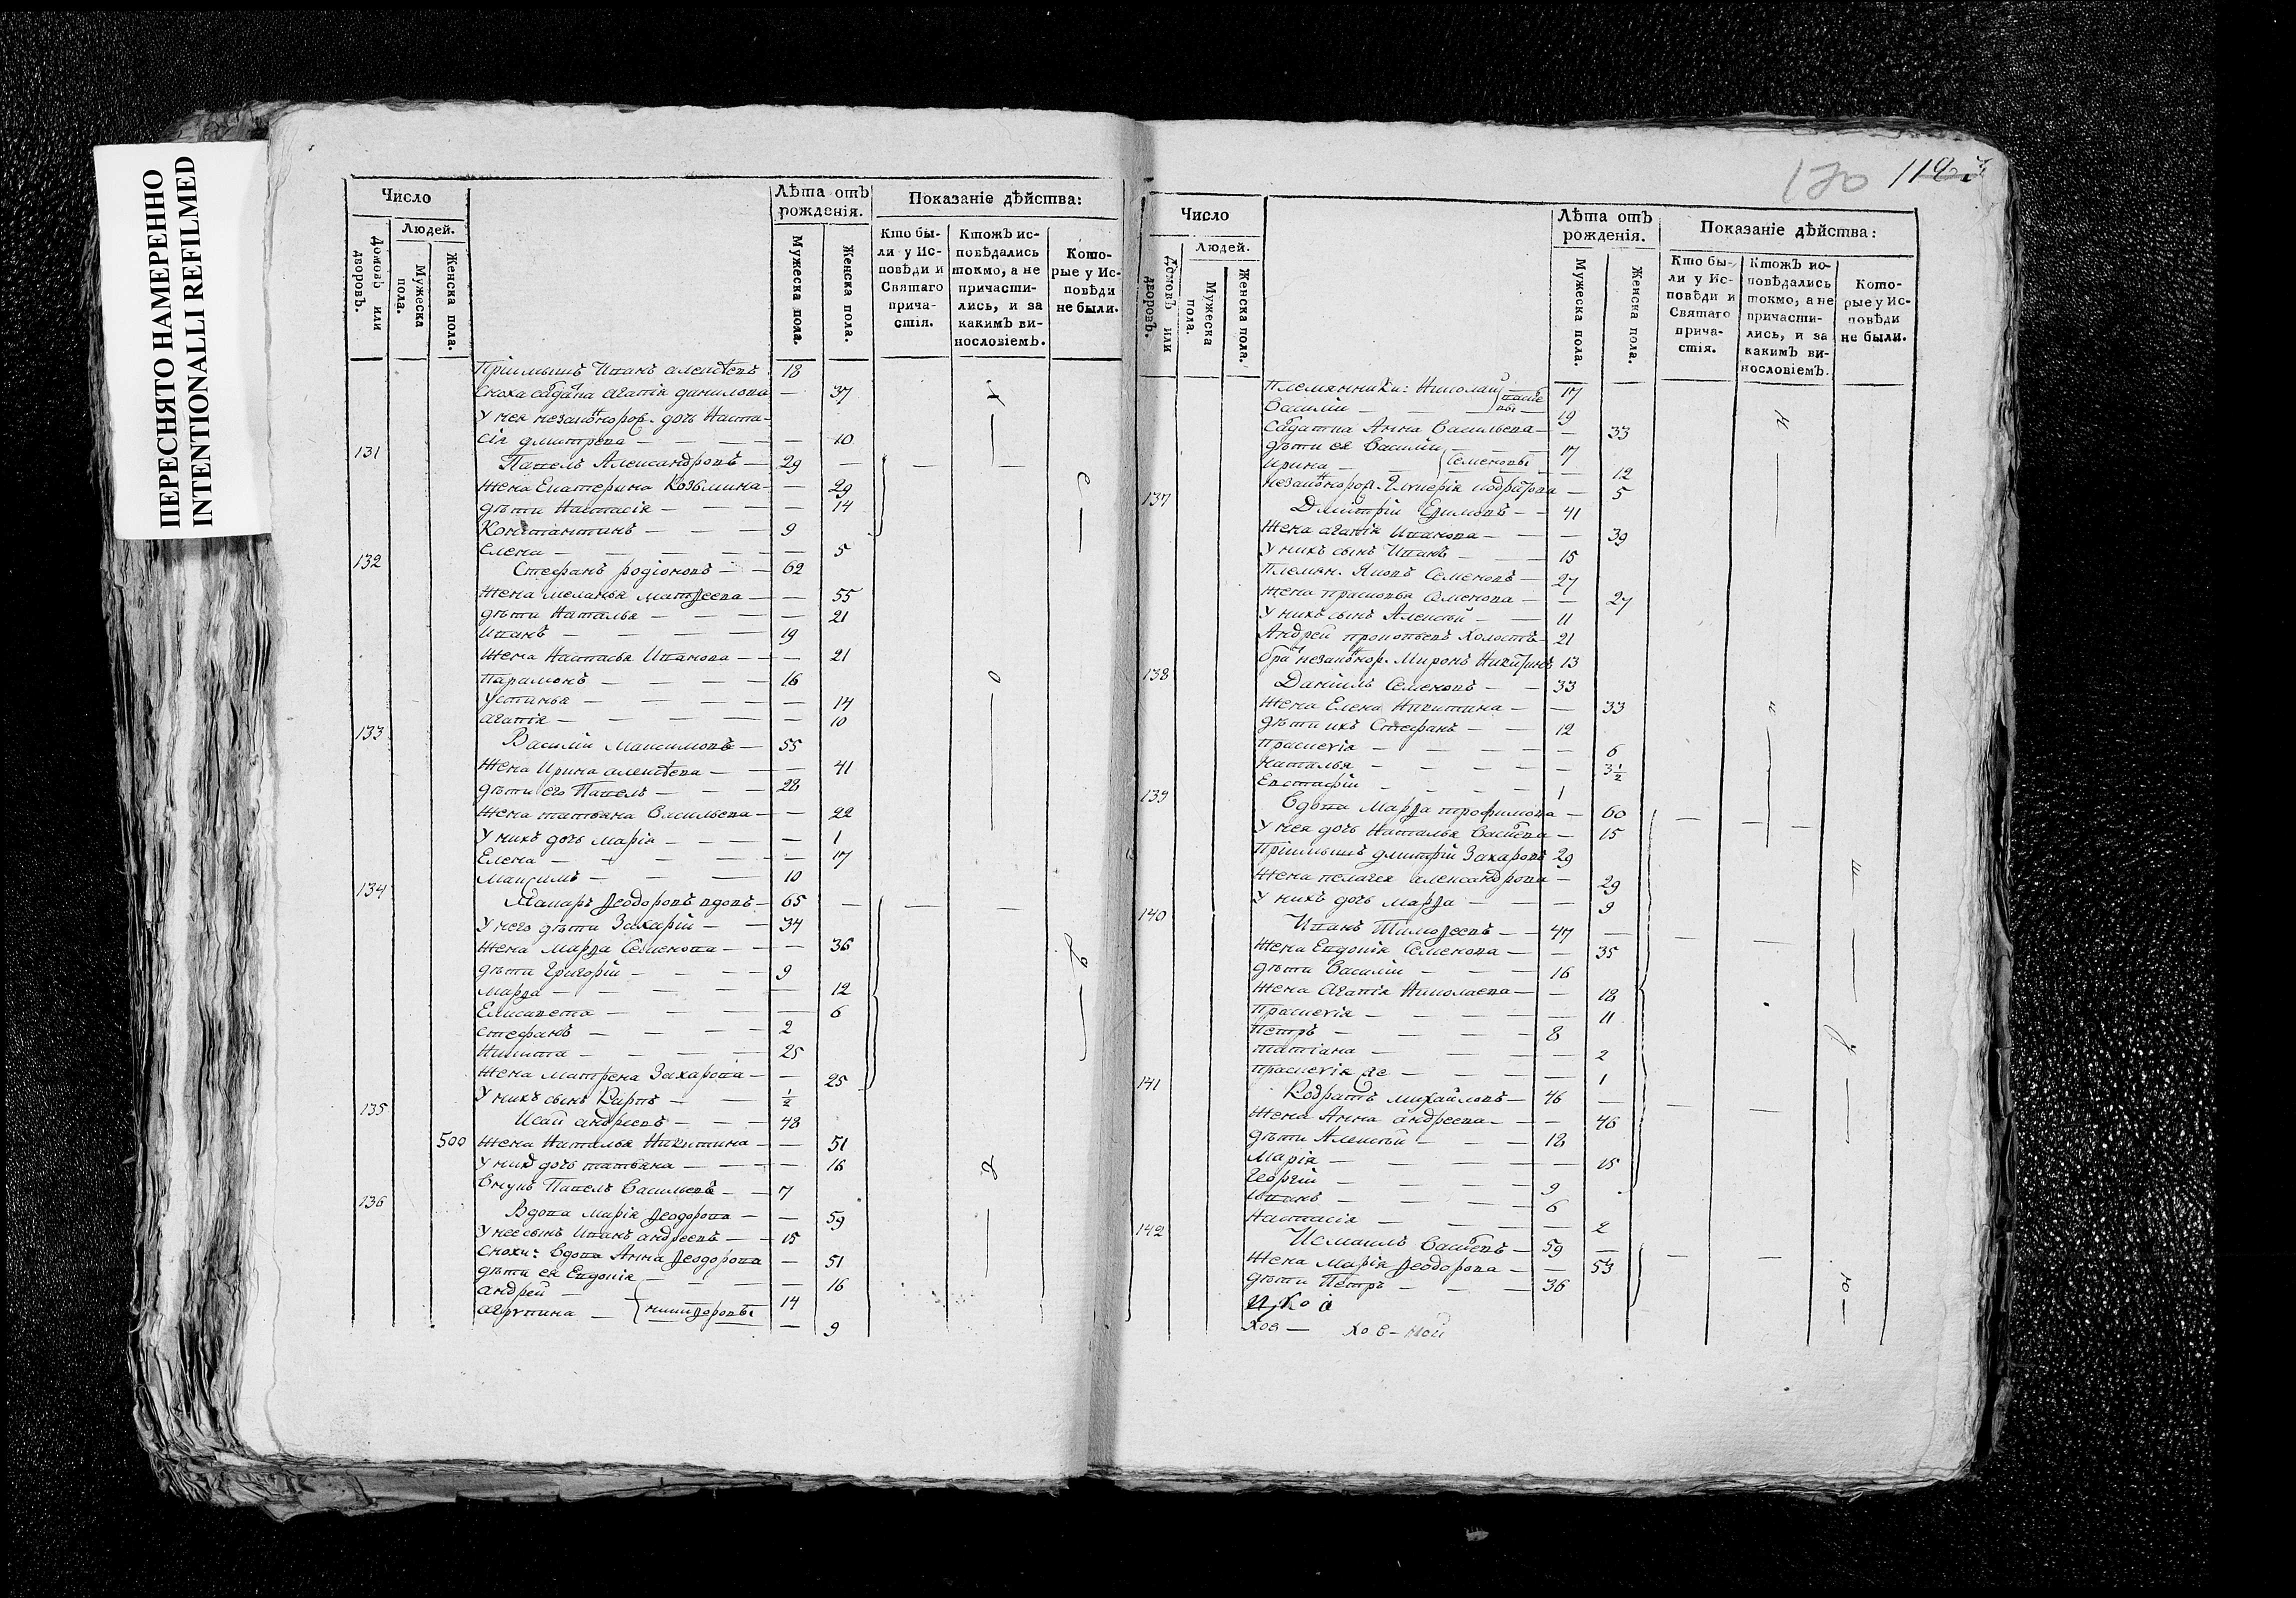 ПЕРЕСНЯТО НАМЕРЕННО
INTENTIONALLI REFILMED
170 119
Число
Людей.
Домовъ или дворовъ.
Мужеска пола.
Женска пола.
Лѣта отъ рожденія.
Мужеска пола.
Женска пола.
Показаніе дѣйства:
Кто были у Исповѣди и Святаго причастія.
Ктожъ исповѣдались токмо, а не причастились, и за какимъ винословіемъ.
Которые у Исповѣди не были.
Пріимышъ Иванъ алеѯѣевъ 18
Сноха солдатка агапія данилова — 37
У нея незаконорож. дочь Наста-
сія дмитрева — 10
131 Павелъ Александровъ — 29 —
жена Екатерина Козьмина — 29
дѣти Настасія — 14
Константинъ — 9
Елена — 5
132 Стефанъ родіоновъ — 62
жена меланья матѳеева — 55
дѣти Наталья — 21
иванъ — 19
жена Настасья Иванова — 21
парамонъ — 16
устинья — 14
агапія — 10
133 Василій максимовъ — 55
жена Ирина алеѯѣева — 41
дѣти его Павелъ — 28
жена татьяна Васильева — 22
У нихъ дочь марія — 1
Елена — 17
максимъ — 10
134 Макаръ Ѳеодоровъ вдовъ — 65 —
У него дѣти Захарій — 34
жена марѳа Семенова — 36
дѣти григорій — 9
марѳа — 12
Елисавета — 6
стефанъ — 2
Никита — 25
жена матрена Захарова — 25
У нихъ сынъ Карпъ — ½
135 Исай андреевъ — 48
500 жена Наталья Никитина — 51
У нихъ дочь татьяна — 16
Внукъ Павелъ Васильевъ — 7
136 Вдова марія Ѳеодорова — 59
У нее сынъ Иванъ андреевъ — 15
снохи: вдова Анна Ѳеодорова — 51
дѣти ея Евдокія — 16
андрей — 14
агрипина — никифоровы — 9
Число
Людей.
Домовъ или дворовъ.
Мужеска пола.
Женска пола.
Лѣта отъ рожденія.
Мужеска пола.
Женска пола.
Показаніе дѣйства:
Кто были у Исповѣди и Святаго причастія.
Ктожъ исповѣдались токмо, а не причастились, и за какимъ винословіемъ.
Которые у Исповѣди не были.
племянники: Николай 17
Василій — 19
солдатка Анна Васильева — 33
дѣти ея Василій 17
ирина — Семеновы — 12
незаконорож. гликерія кодратова — 5
137 Дмитрій Ефимовъ — 41
жена агапія Иванова — 39
У нихъ сынъ Иванъ — 15
племян. Яковъ Семеновъ — 27
жена прасковья Семенова — 27
У нихъ сынъ Алеѯѣй — 11
Андрей прокопьевъ холостъ — 21
братъ незаконор. Миронъ Никитинъ 13
138 Даніилъ Семеновъ — 33
жена Елена Никитина — 33
дѣти ихъ Стефанъ — 12
праскевія — 6
наталья — 3½
Евстафій — 1
139 Вдова марѳа трофимова — 60
У нея дочь Наталья Васильева — 15
пріимышъ дмитрій Захаровъ 29
жена пелагея александрова — 29
У нихъ дочь марѳа — 9
140 Иванъ Тимоѳеевъ — 47 —
жена Евдокія Семенова — 35
дѣти Василій — 16
жена Агапія Николаева — 18
праскевія — 11
петръ — 8
татіана — 2
праскевія же — 1
141 Кодратъ михайловъ — 46 —
жена Анна андреева — 46
дѣти Алеѯѣй — 18
марія — 15
георгій — 9
иванъ — 6
настасія — 2
142 Исмаилъ Васильевъ — 59 —
жена марія Ѳеодорова — 53
дѣти петръ — 36